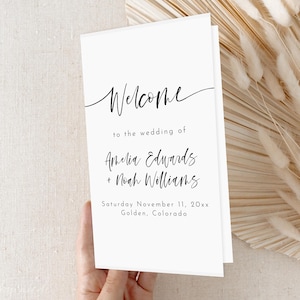 Welcome
to the wedding of
Amelia Edwards
+ Noah Williams
Saturday November 11, 20xx
Golden, Colorado